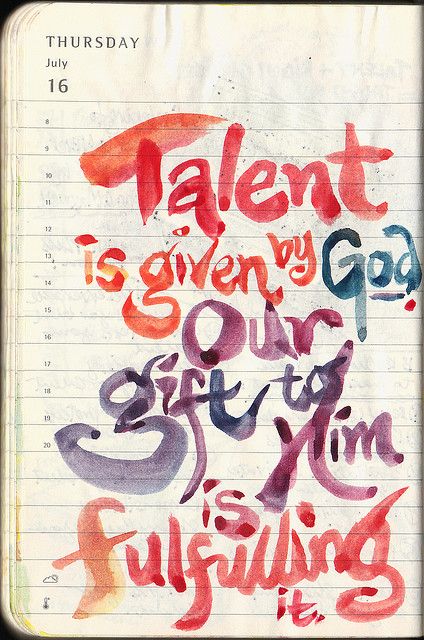 THURSDAY
July
16
8
9
10
11
12
13
14
15
16
17
18
19
20
Talent
is given by God.
Our
gift to
Him
is
fulfilling
it.